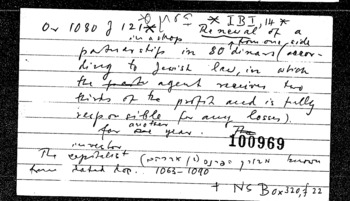 Or 1080 J 121 * IBI, 14 *
Renewal of a
in a shop from one side
partnership in 80 dinars (accor-
ding to Jewish law, in which
the agent receives two
thirds of the profit and is fully
responsible for any losses).
for another year.
100969
investor
The capitalist known
from dated doc. 1063-1090
+ NS Box 320, f 22